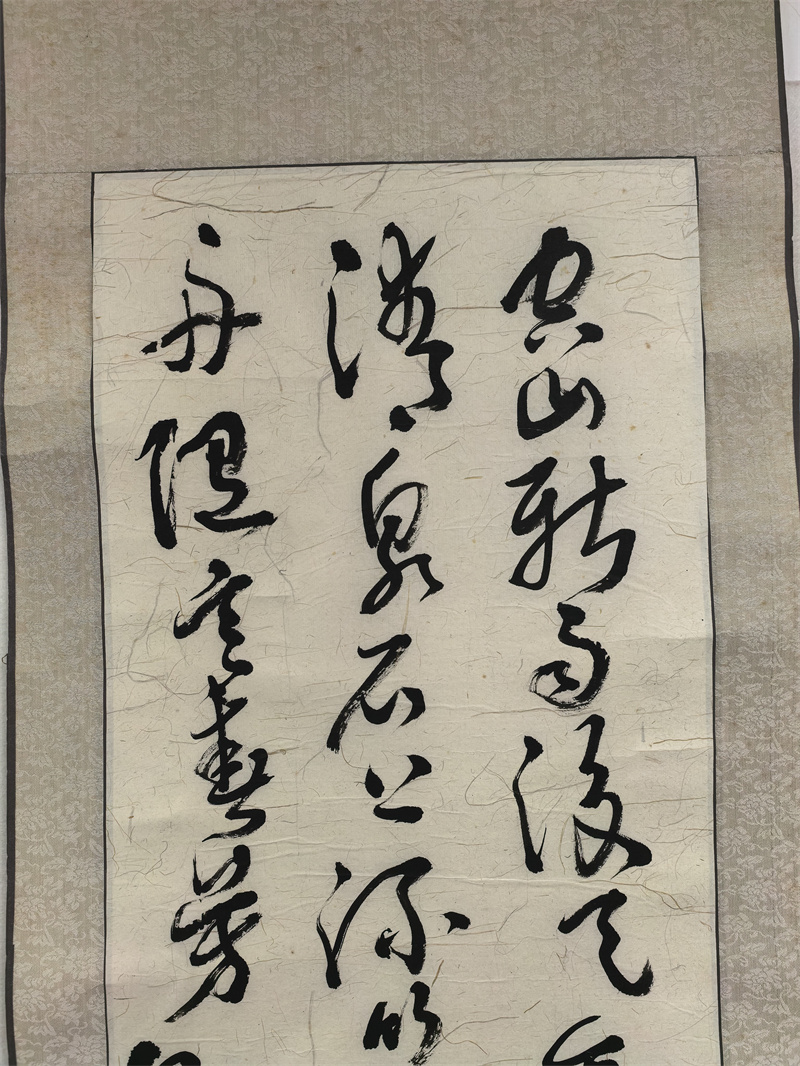 空山新雨後天
清泉石上流竹
舟随意春芳